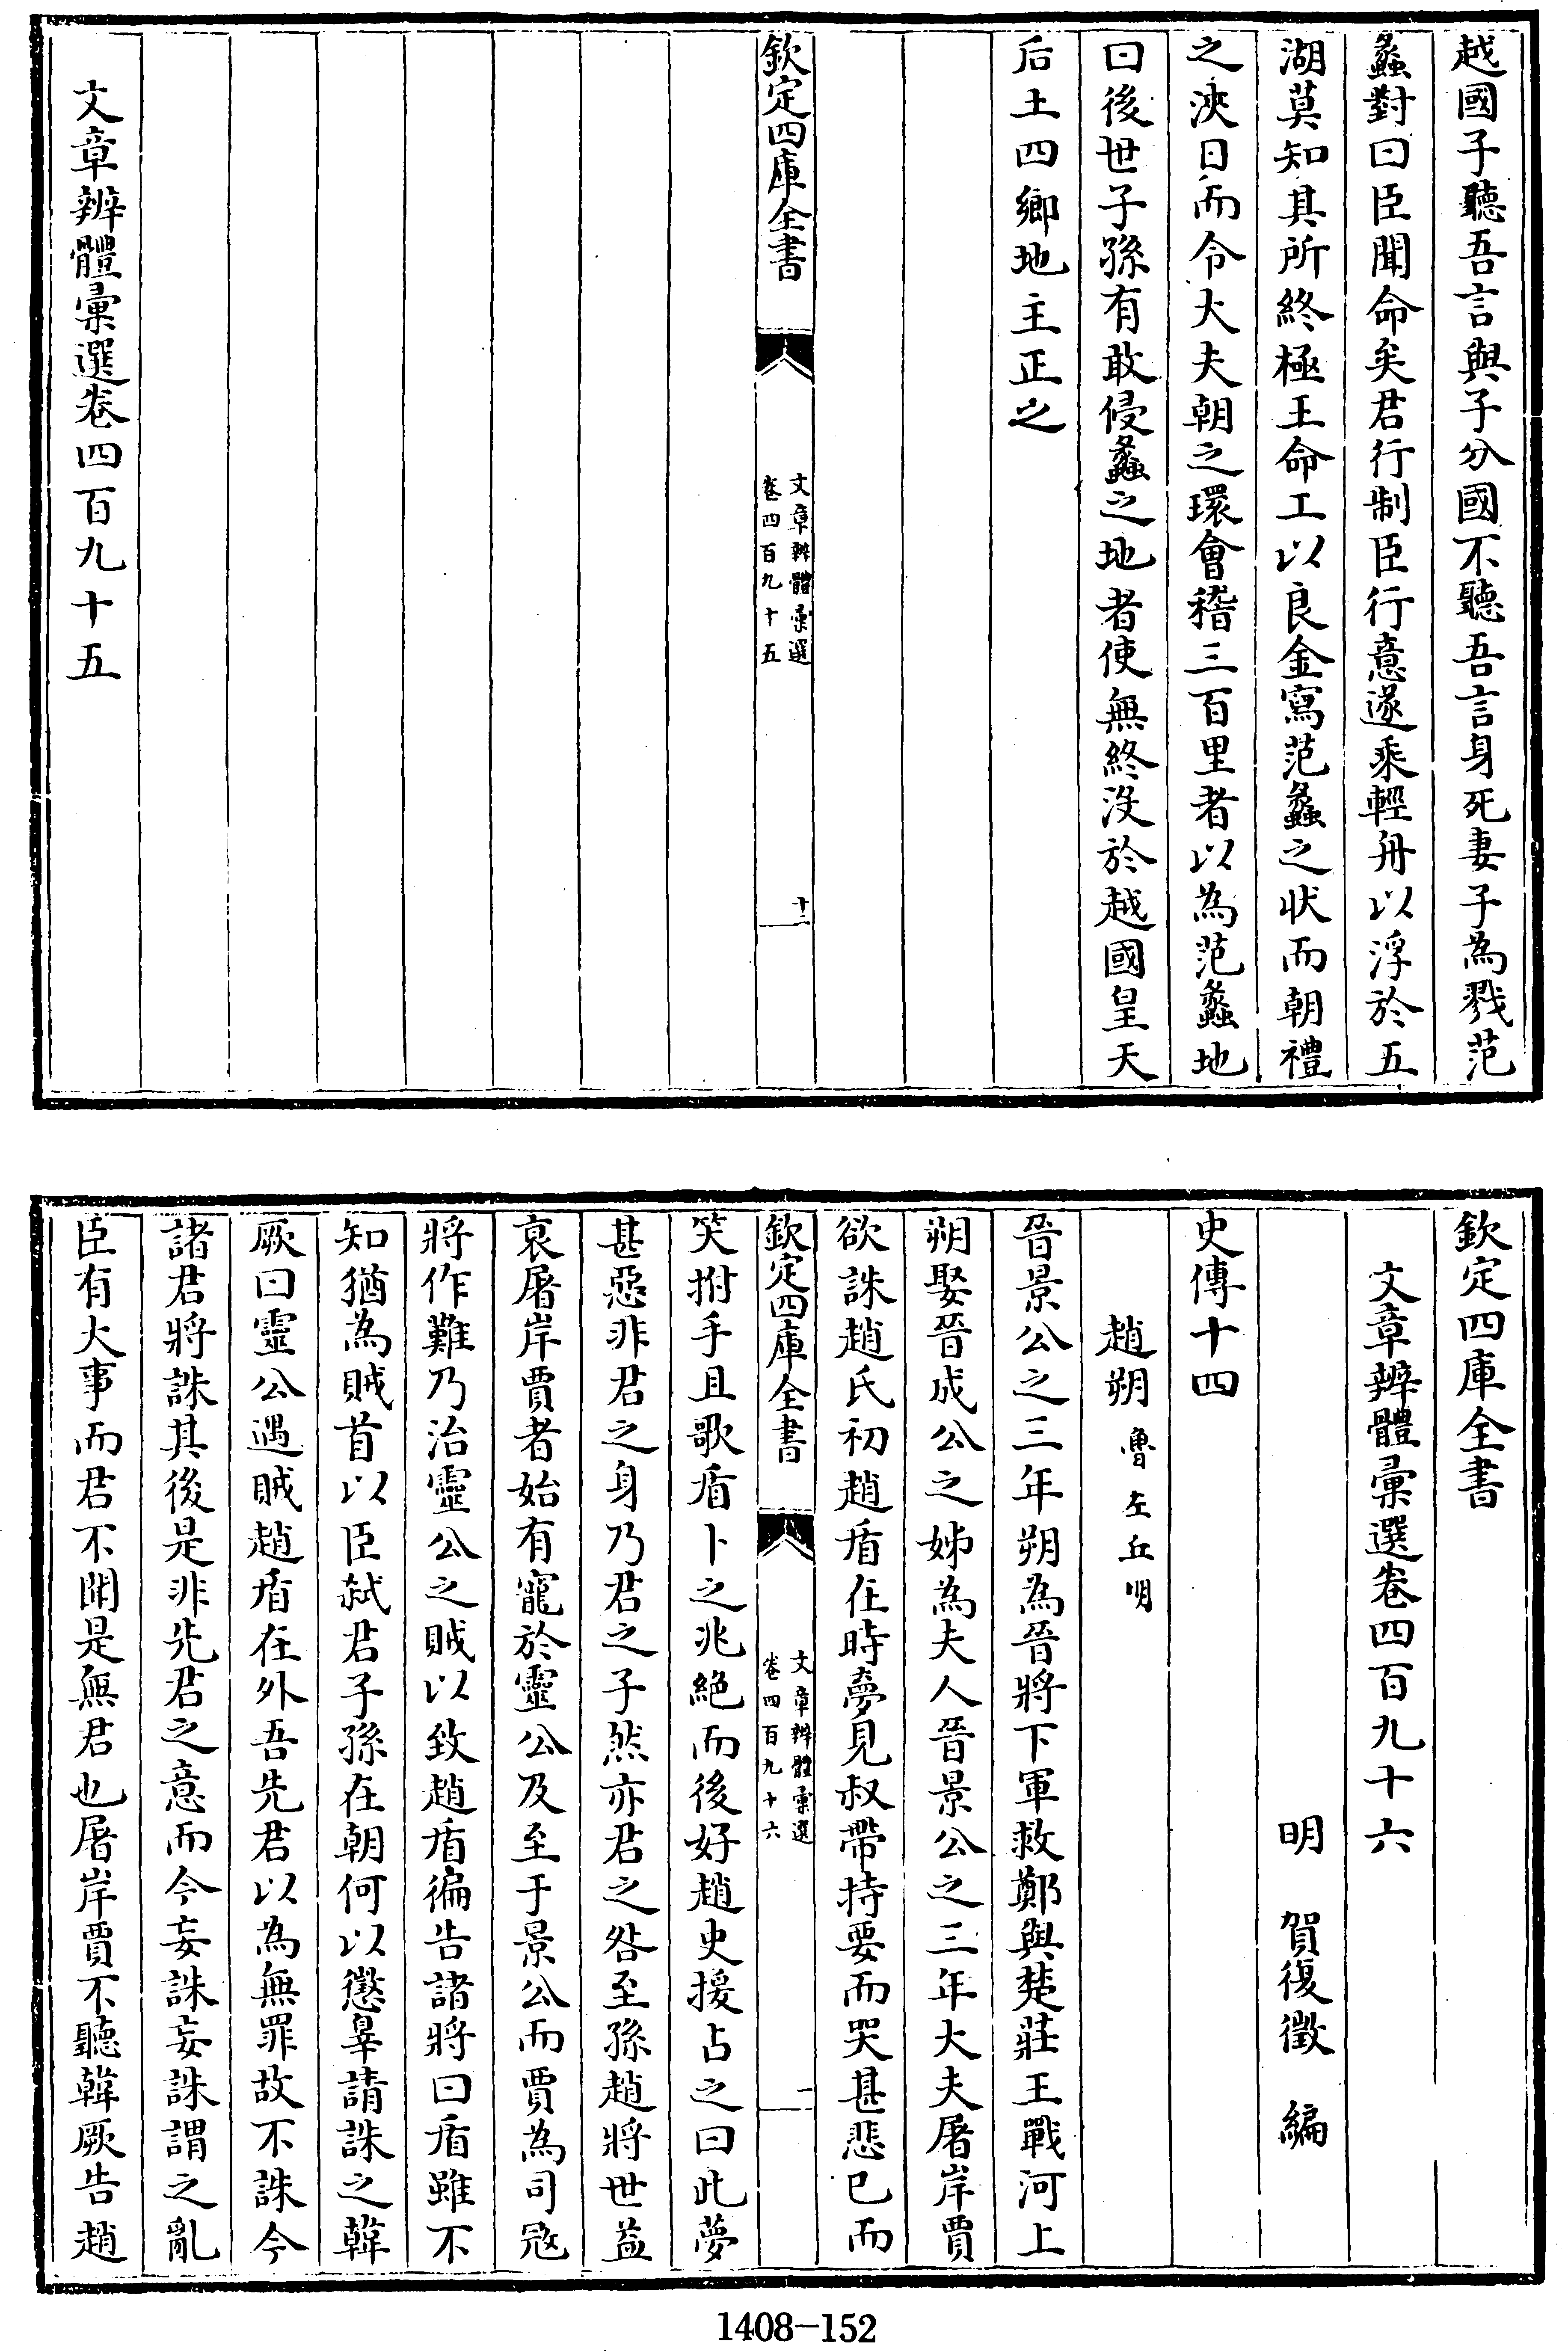 越國子聽吾言與子分國不聽吾言身死妻子為戮范
蠡對曰臣聞命矣君行制臣行意遂乘輕舟以浮於五
湖莫知其所終極王命工以良金寫范蠡之狀而朝禮
之浹日而令大夫朝之環會稽三百里者以為范蠡地
曰後世子孫有敢侵蠡之地者使無終沒於越國皇天
后土四鄉地主正之
欽定四庫全書
文章辨體彙選
卷四百九十五
十二
文章辨體彙選卷四百九十五
欽定四庫全書
文章辨體彙選卷四百九十六
明 賀復徵 編
史傳十四
趙朔 魯左丘明
晉景公之三年朔為晉將下軍救鄭與楚莊王戰河上
朔娶晉成公之姊為夫人晉景公之三年大夫屠岸賈
欲誅趙氏初趙盾在時夢見叔帶持要而哭甚悲已而
欽定四庫全書
文章辨體彙選
卷四百九十六
一
笑拊手且歌盾卜之兆絕而後好趙史援占之曰此夢
甚惡非君之身乃君之子然亦君之咎至孫趙將世益
衰屠岸賈者始有寵於靈公及至于景公而賈為司寇
將作難乃治靈公之賊以致趙盾徧告諸將曰盾雖不
知猶為賊首以臣弒君子孫在朝何以懲辠請誅之韓
厥曰靈公遇賊趙盾在外吾先君以為無罪故不誅今
諸君將誅其後是非先君之意而今妄誅妄誅謂之亂
臣有大事而君不聞是無君也屠岸賈不聽韓厥告趙
1408-152